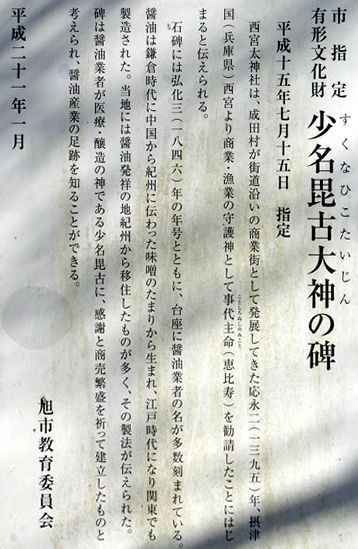 市指定
有形文化財
少名毘古大神の碑
すくなひこたいじん
平成十五年七月十五日 指定
西宮太神社は、成田村が街道沿いの商業街として発展してきた応永二(一三九五)年、摂津
国(兵庫県)西宮より商業・漁業の守護神として事代主命(恵比寿)を勧請したことにはじ
ことしろぬしのみこと
まると伝えられる。
石碑には弘化三(一八四六)年の年号とともに、台座に醤油業者の名が多数刻まれている。
醤油は鎌倉時代に中国から紀州に伝わった味噌のたまりから生まれ、江戸時代になり関東でも
製造された。当地には醤油発祥の地紀州から移住したものが多く、その製法が伝えられた。
碑は醤油業者が医療・醸造の神である少名毘古に、感謝と商売繁盛を祈って建立したものと
考えられ、醤油産業の足跡を知ることができる。
平成二十一年一月
旭市教育委員会